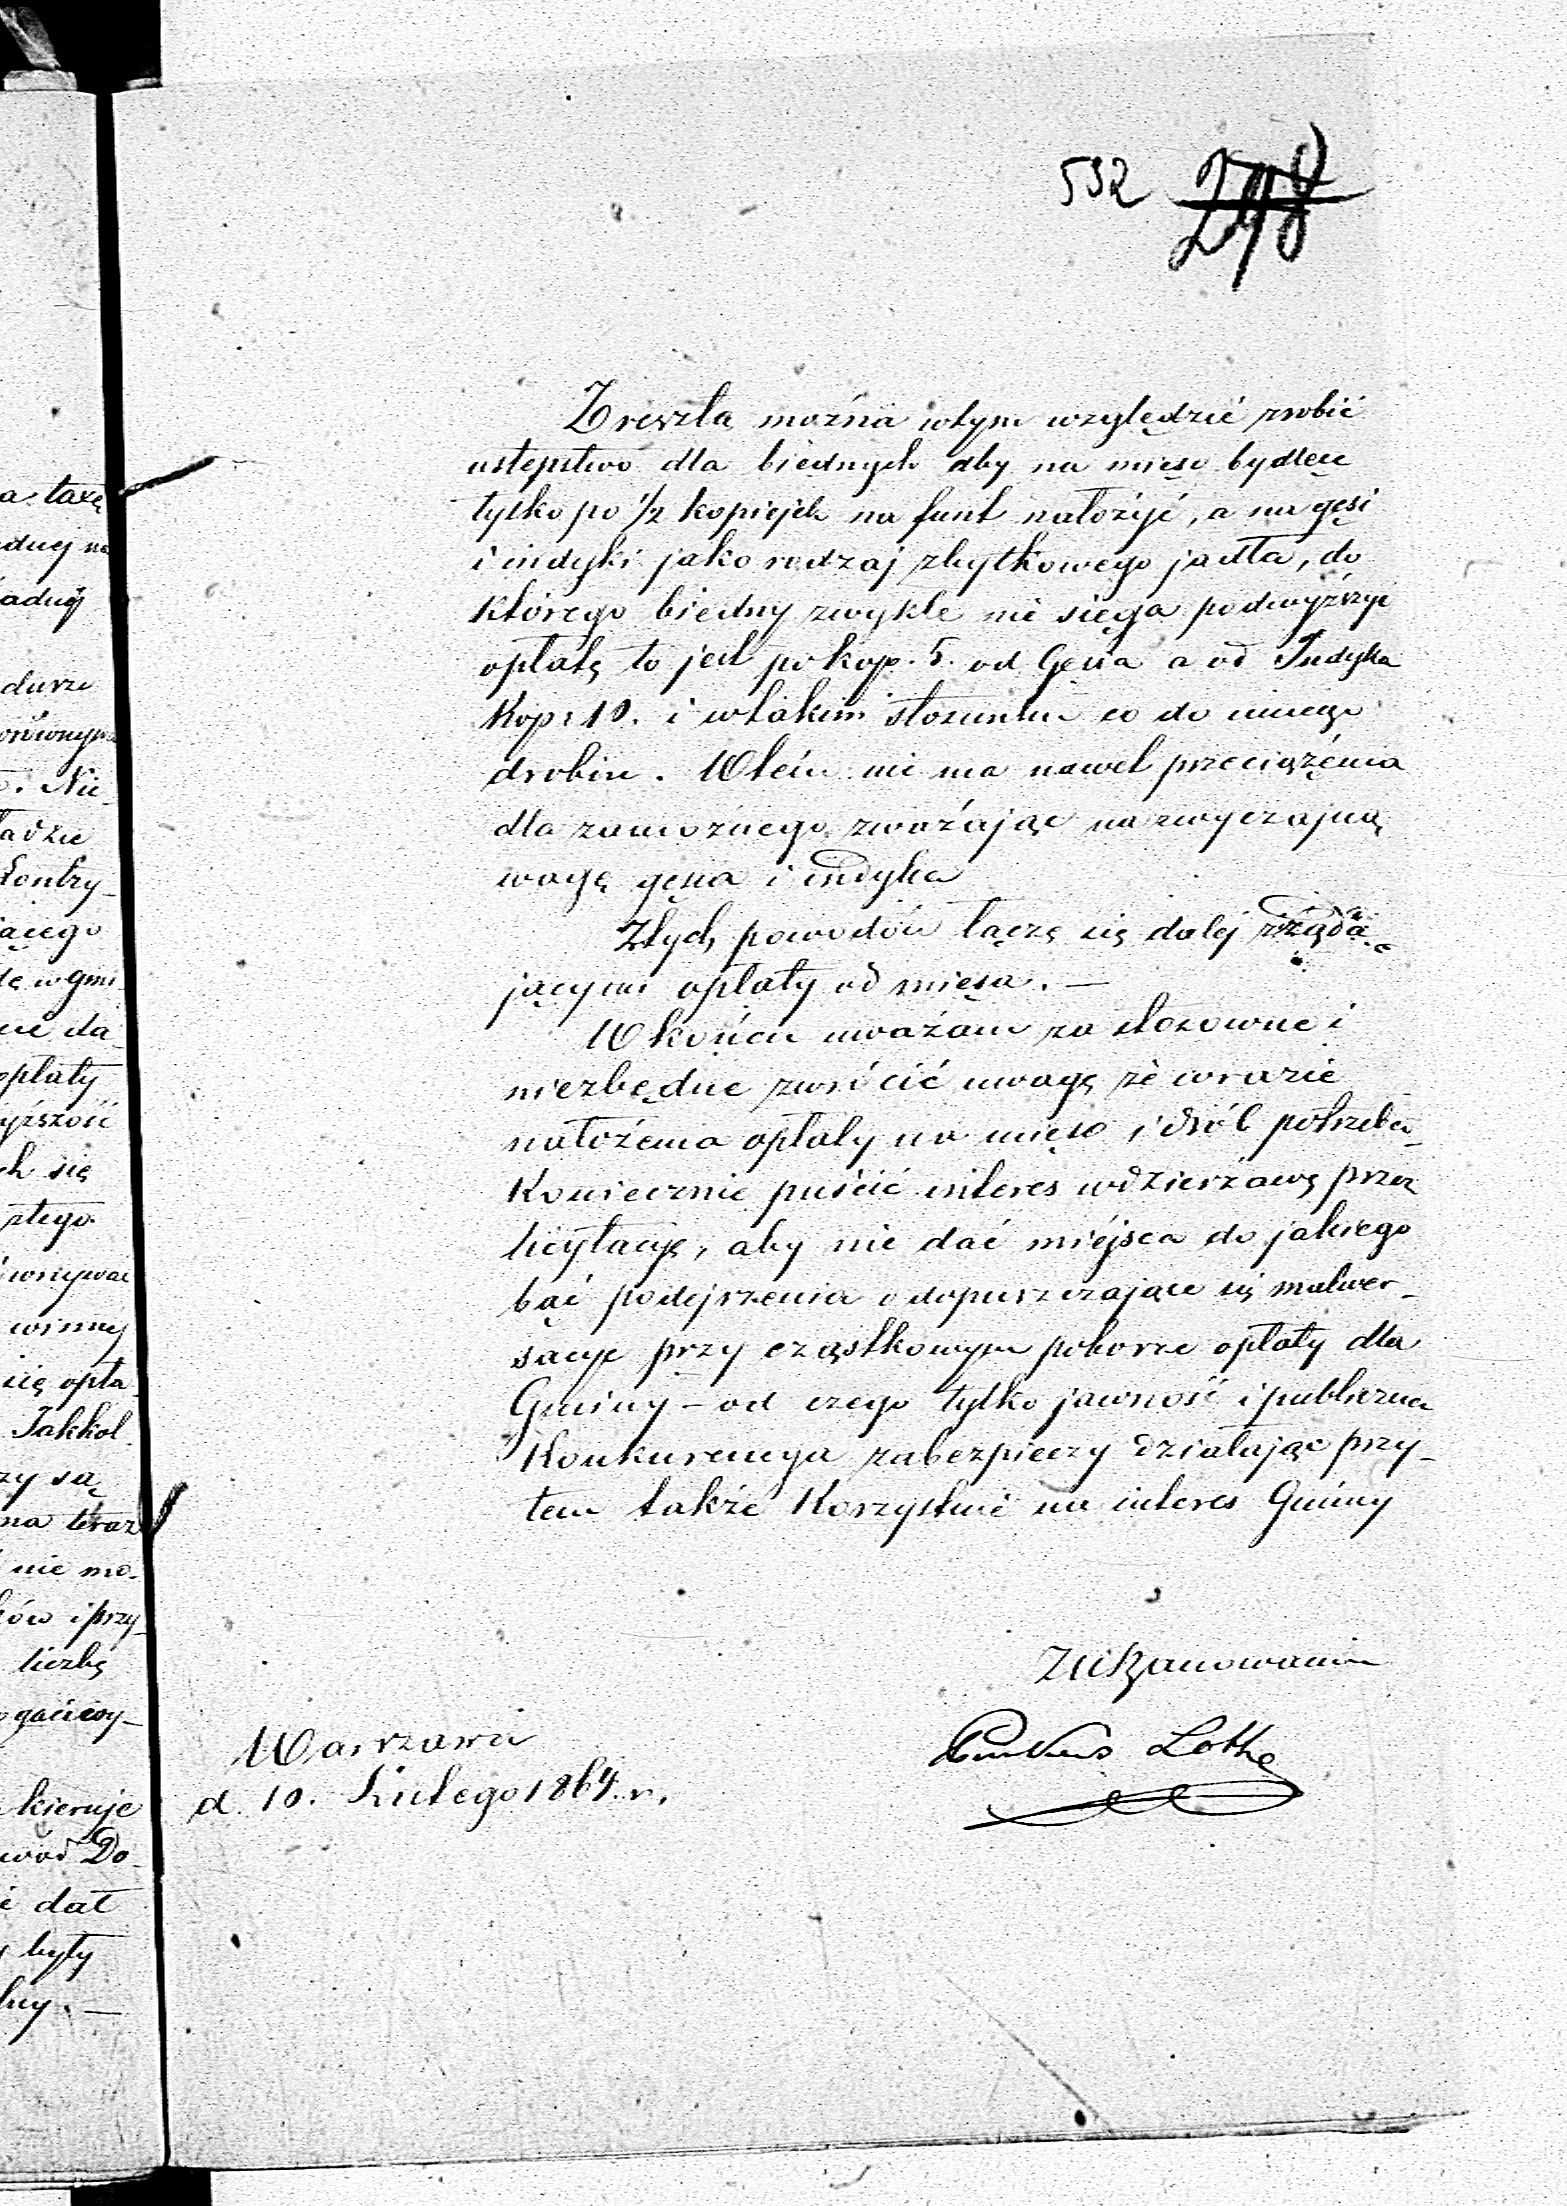 532 298
Zresztą można wtym względzie zrobić
ustępstwo dla biednych aby na mięso bydlęce
tylko po 1/2 kopiejek na funt nałożyć, a na gęsi
i indyki jako rodzaj zbytkowego jadła, do
którego biedny zwykle nie sięga podwyższyć
opłatę to jest po kop. 5. od Gęsia a od Indyka
Kop: 10. i wtakim stosunku co do innego
drobiu. Wtém nie ma nawet przeciążenia
dla zamożnego zważając na zwyczajną
wagę gęsia i indyka
Ztych powodów łączę się dalej zżąda-
jącymi opłaty od mięsa. —
W końcu uważam za stosowne i
niezbędne zwrócić uwagę że wrazie
nałożenia opłaty na mięso i drób potrzeba
Koniecznie puścić interes wdzierżawę przez
licytacyę, aby nie dać miéjsca do jakiego
bąć podejrzenia o dopuszczające się malwer-
sacye przy cząstkowym poborze opłaty dla
Gminy – od czego tylko jawność i publiczna
Konkurencya zabezpieczy działając przy-
tem także Korzystnie na interes Gminy
Zuszanowaniem
Lothe
Warszawa
d. 10. Lutego 1864. r.
a taxę
żadnéj
. Nie
ładzie
Kontry-
jącego
w gmi-
opłaty
yższość
ch się
złego
winny
się opła-
Jakkol-
zy są
na teraz
nie mo-
ów i przy-
liczbę
kieruje
wód Do-
dał
były